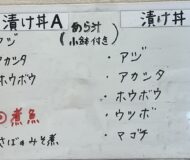 漬け丼A
(あら汁
小鉢付き)
アジ
アカンタ
ホウボウ
煮魚
さばのみそ煮
漬け丼
・アジ
・アカンタ
・ホウボウ
・ウツボ
・マゴチ